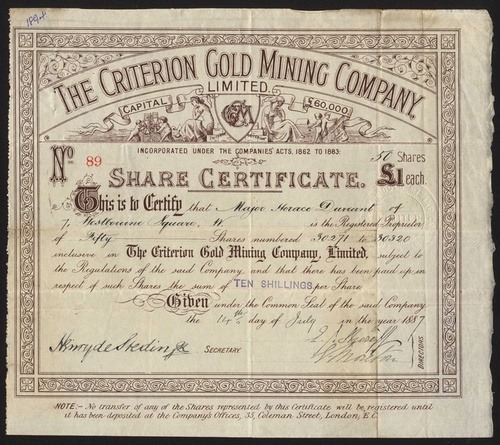 1894
THE CRITERION GOLD MINING COMPANY,
LIMITED.
CAPITAL £60,000
INCORPORATED UNDER THE COMPANIES' ACTS, 1862 TO 1883.
No. 89
50 Shares
SHARE CERTIFICATE. £1 each.
This is to Certify that Major Horace Durrant of
7, Westbourne Square, W. is the Registered Proprietor
of Fifty Shares numbered 30271 to 30320
inclusive in The Criterion Gold Mining Company, Limited, subject to
the Regulations of the said Company and that there has been paid up in
respect of such Shares the sum of TEN SHILLINGS per Share
Given under the Common Seal of the said Company
the 14th day of July in the year 1887
SECRETARY
DIRECTORS
NOTE:- No transfer of any of the Shares represented by this Certificate will be registered until
it has been deposited at the Company's Offices, 35, Coleman Street, London, E.C.